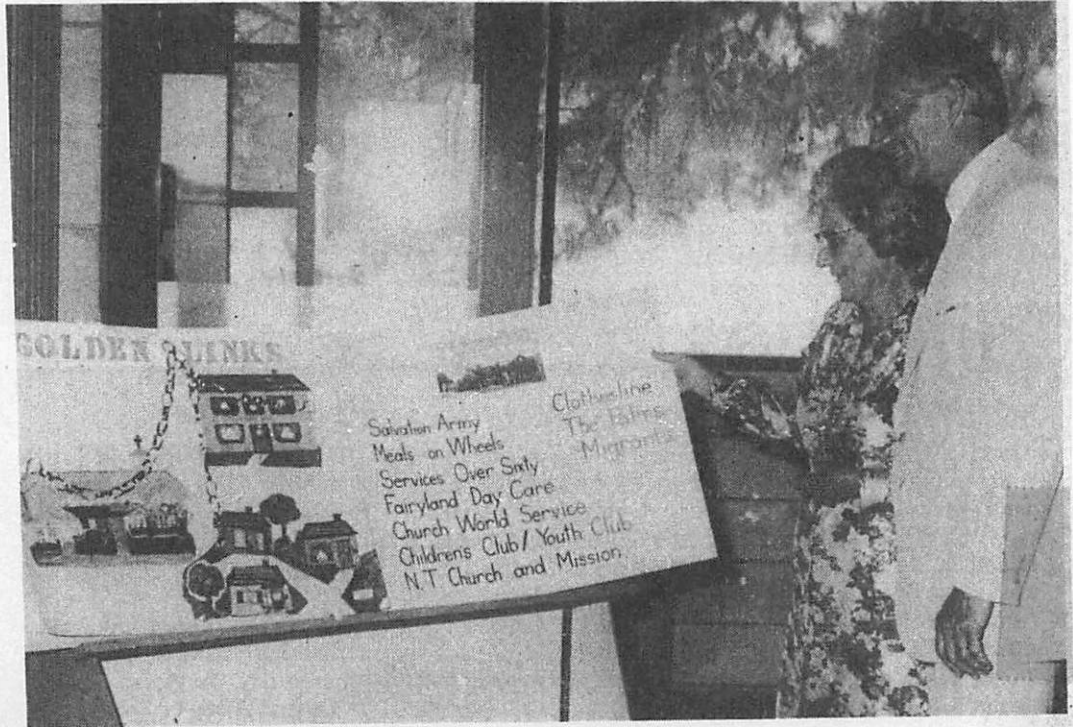 GOLDEN LINKS
Salvation Army
Meals on Wheels
Services Over Sixty
Fairyland Day Care
Church World Service
Childrens Club/Youth Club
N.T. Church and Mission
Clothesline
The Palms
Migrants